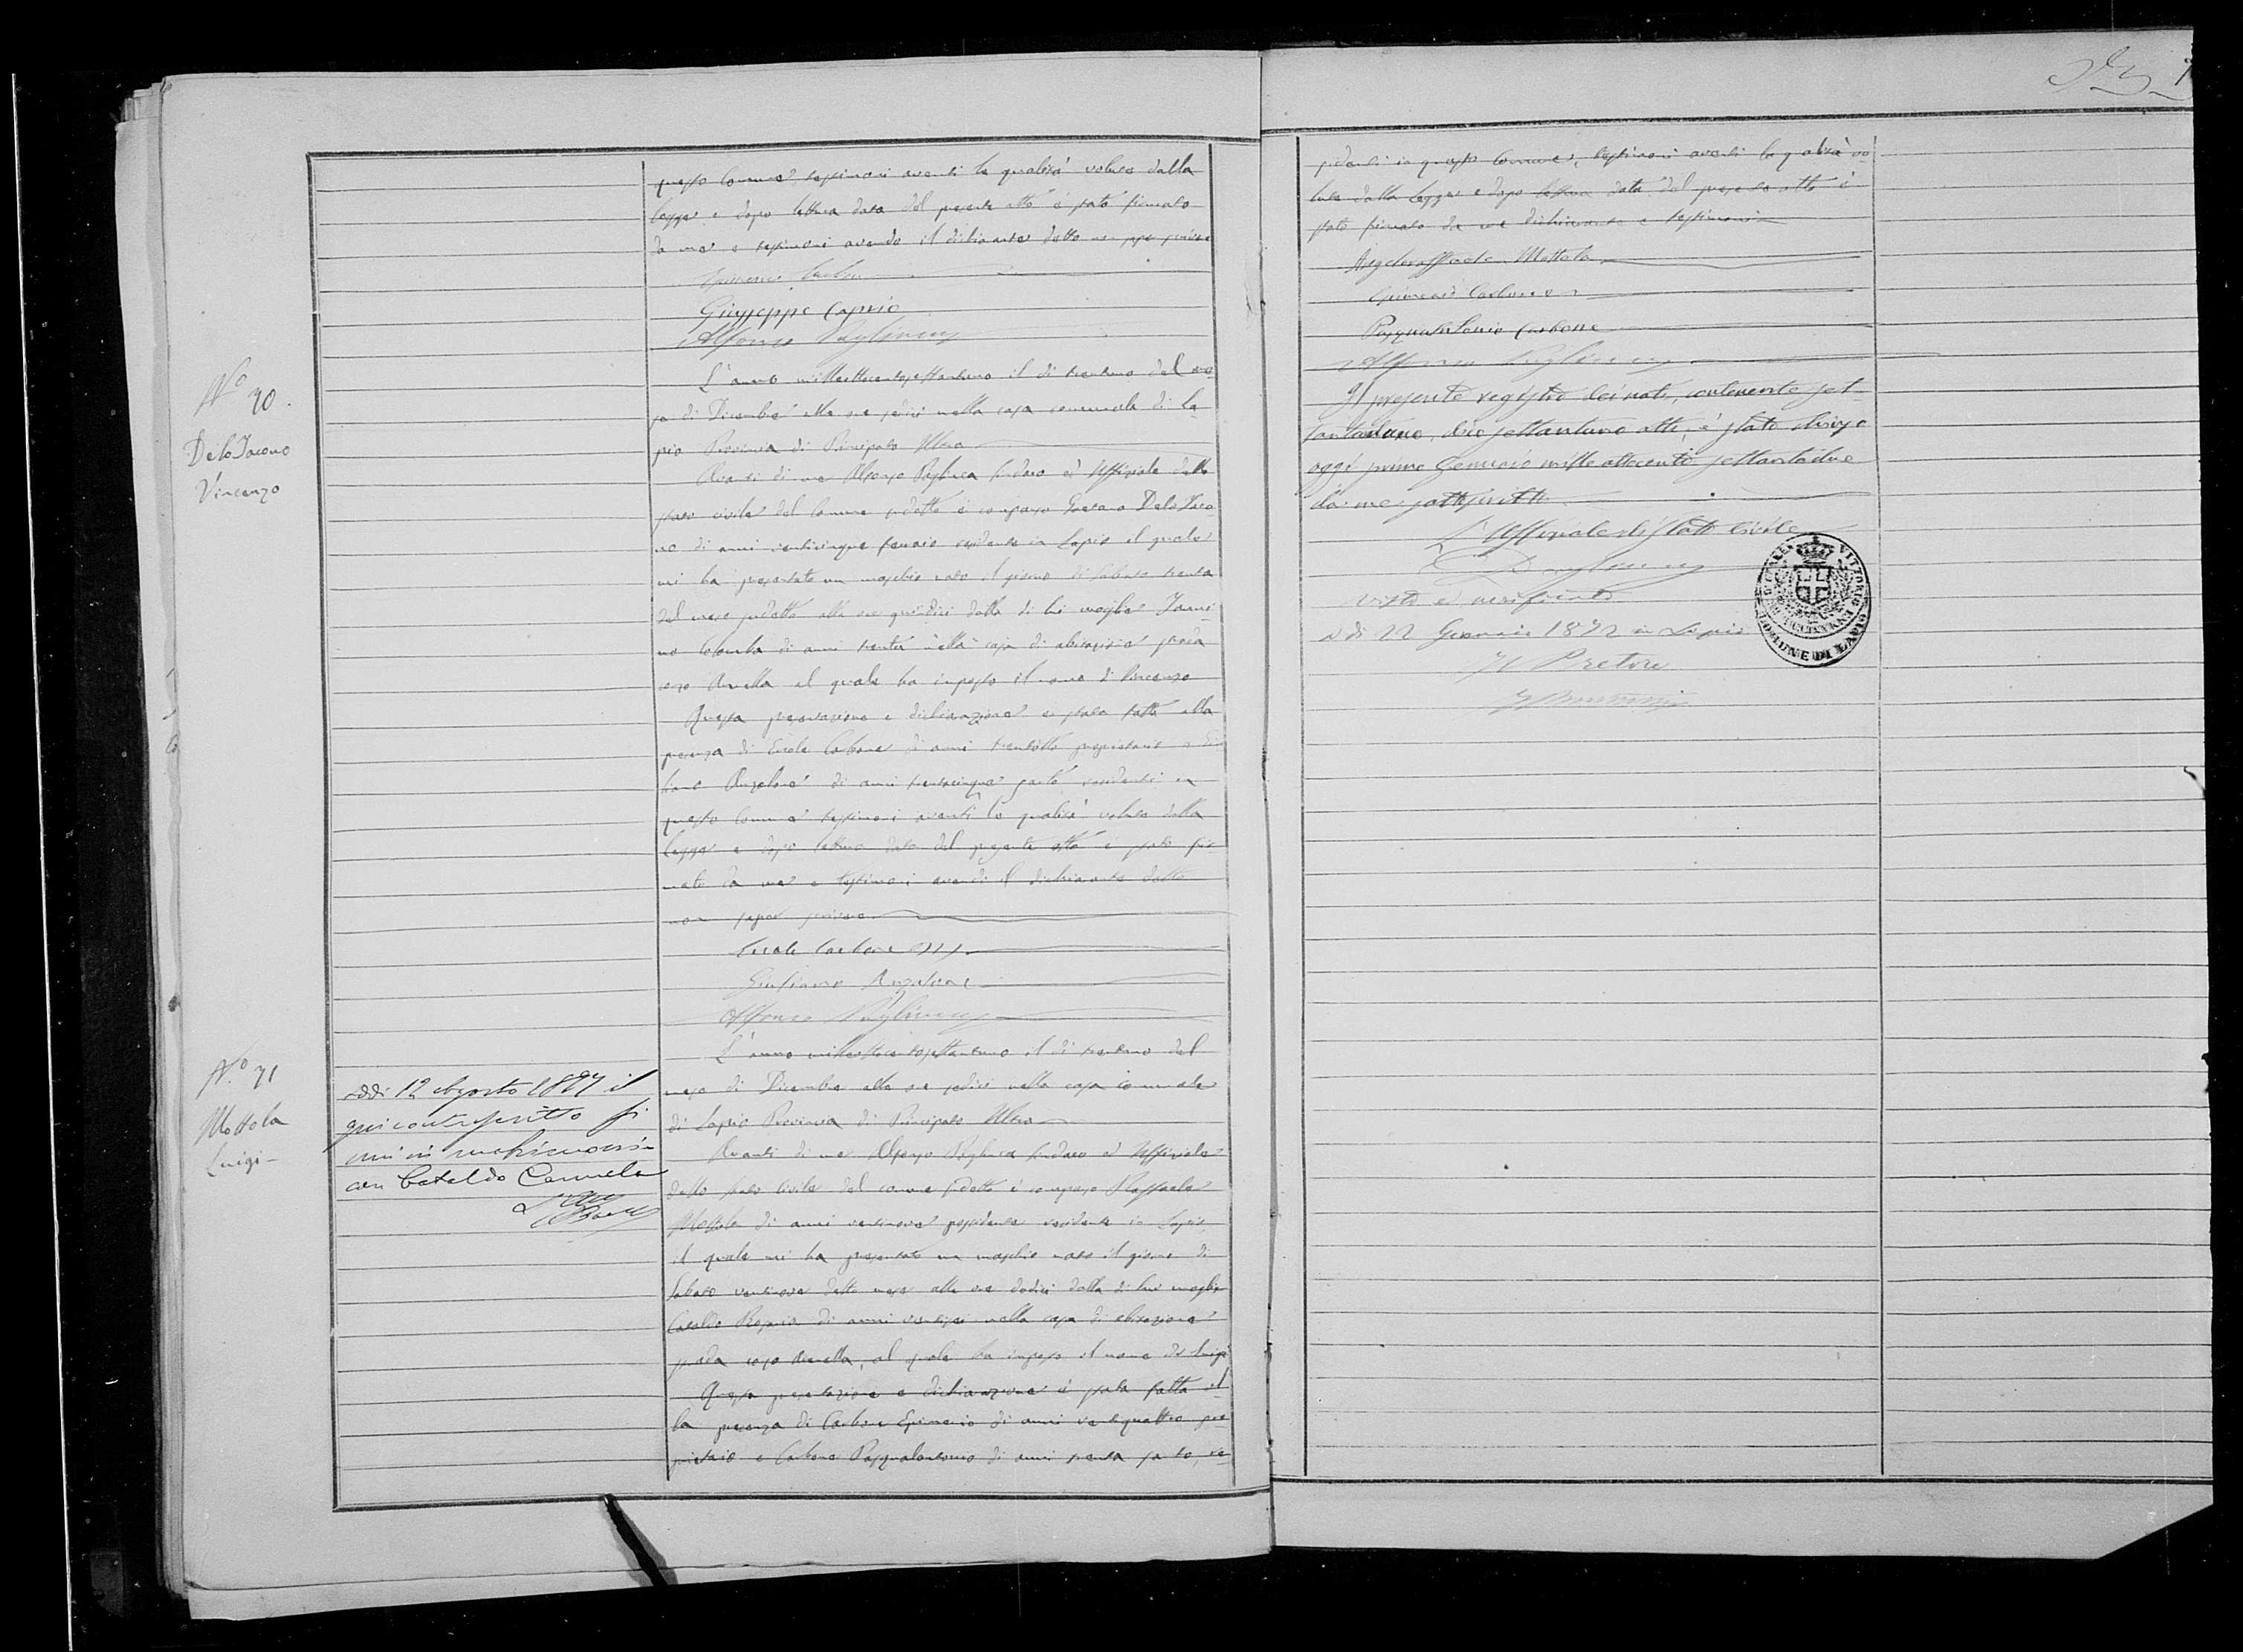 questo Comune, testimoni aventi le qualità volute dalla
legge e dopo lettura data del presente atto è stato firmato
da me e testimoni avendo il dichiarante detto non saper scrivere
Giuseppe Caprio
Alfonso
N.º 70.
De lo Jacono
Vincenzo
L'anno milleottocentosettantuno il dì trentuno del me
se di Dicembre alle ore sedici nella casa comunale di La
pio Provincia di Principato Ultra
Avanti di me Alfonso Sindaco ed Uffiziale dello
stato civile del Comune sudetto è comparso De lo Jaco
no di anni venticinque residente in Lapio il quale
mi ha presentato un maschio nato il giorno di Sabato trenta
del mese sudetto alle ore quindici dalla di lui moglie Ianni
no Colomba di anni trenta nella casa di abitazione strada
al quale ha imposto il nome di Vincenzo
Questa presentazione e dichiarazione è stata fatta alla
presenza di Ercole Carbone di anni trentotto proprietario e Giu
liano Anzalone di anni trentacinque sarto residenti in
questo Comune testimoni aventi le qualità volute dalla
legge e dopo lettura data del presente atto è stato fir
mato da me e testimoni avendo il dichiarante detto
non saper scrivere
Ercole Carbone
Giuliano Anzalone
Alfonso
N.º 71
Mottola
Luigi
Addì 12 Agosto 1897 il
qui contrascritto si
unì in matrimonio
con Cataldo Carmela
L'anno milleottocentosettantuno il dì trentuno del
mese di Dicembre alle ore sedici nella casa comunale
di Lapio Provincia di Principato Ultra
Avanti di me Alfonso Sindaco ed Uffiziale
dello stato civile del comune sudetto è comparso Raffaele
Mottola di anni ventinove residente in Lapio
il quale mi ha presentato un maschio nato il giorno di
Sabato detto mese alle ore dodici dalla di lui moglie
Cataldo di anni nella casa di abitazione
strada al quale ha imposto il nome di Luigi
Questa presentazione e dichiarazione è stata fatta al
la presenza di Carbone Epimenio di anni ventiquattro pro
prietario e Carbone Pasqualantonio di anni trenta sarto, re
sidenti in questo Comune, testimoni aventi le qualità vo
lute dalla legge e dopo lettura data del presente atto è
stato firmato da me dichiarante e testimoni
Angeloraffaele Mottola
Epimenio Carbone
Pasqualantonio Carbone
Alfonso
Il presente registro dei nati, contenente set
tantuno, dico settantuno atti, è stato chiuso
oggi primo Gennaio mille ottocento settantadue
da me sottoscritto
L'Uffiziale di Stato Civile
Visto e verificato
a dì 22 Gennaio 1872 in Lapio
Il Pretore
COMUNE DI LAPIO